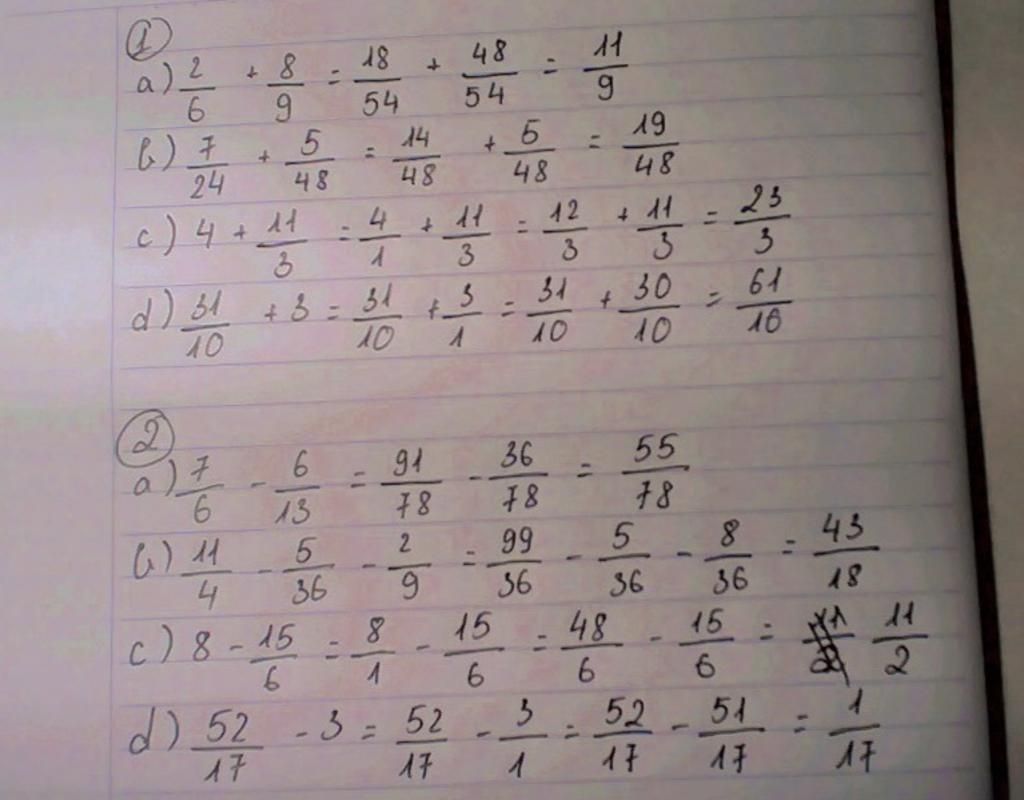 1
a) 2/6 + 8/9 = 18/54 + 48/54 = 11/9
b) 7/24 + 5/48 = 14/48 + 5/48 = 19/48
c) 4 + 11/3 = 4/1 + 11/3 = 12/3 + 11/3 = 23/3
d) 31/10 + 3 = 31/10 + 3/1 = 31/10 + 30/10 = 61/10
2
a) 7/6 - 6/13 = 91/78 - 36/78 = 55/78
b) 11/4 - 5/36 - 2/9 = 99/36 - 5/36 - 8/36 = 43/18
c) 8 - 15/6 = 8/1 - 15/6 = 48/6 - 15/6 = 11/2
d) 52/17 - 3 = 52/17 - 3/1 = 52/17 - 51/17 = 1/17